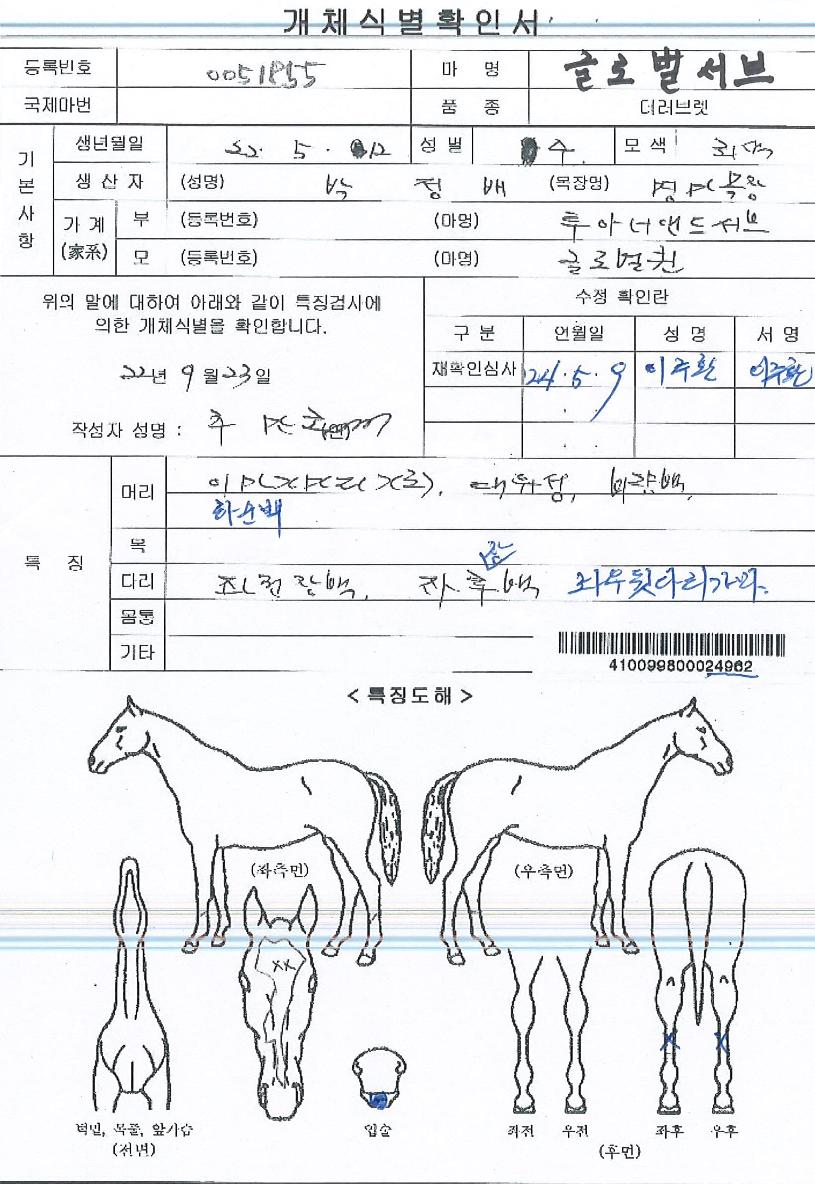 개체식별확인서
등록번호 0051855 마 명 글로벌서브
국제마번 품 종 더러브렛
기본사항
생년월일 22. 5. 12 성별 수 모색
생 산 자 (성명) 박 정 배 (목장명) 목장
가 계 (家系) 부 (등록번호) (마명) 투아너앤드서브
모 (등록번호) (마명) 글로벌퀸
위의 말에 대하여 아래와 같이 특징검사에
의한 개체식별을 확인합니다.
22년 9월 23일
작성자 성명 :
수정 확인란
구 분 연월일 성 명 서 명
재확인심사 24.5.9 이주환 이주환
특 징
머리
하순백
목
다리 좌후 백 좌우뒷다리가마.
몸통
기타
410099800024962
< 특징도해 >
(좌측면) (우측면)
XX
턱밑, 목줄, 앞가슴 입술 좌전 우전 좌후 우후
(전면) (후면)